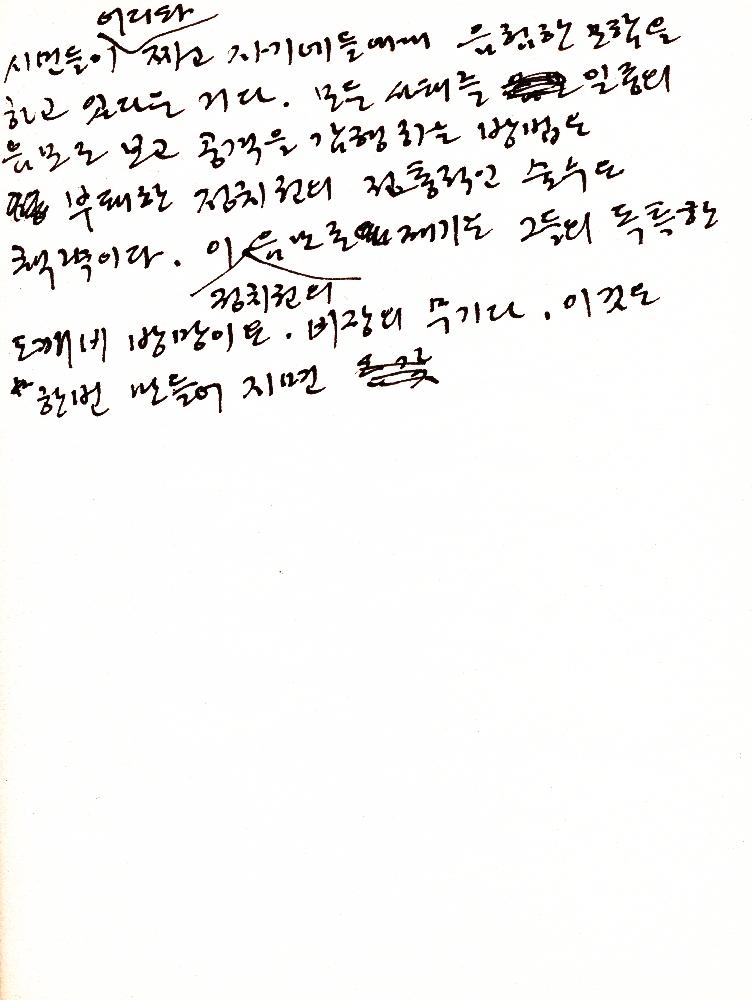 어디다
시민들이 짜고 자기네들에게 음험한 모략을
하고 있다는 거다. 모든 사태를 일종의
음모로 보고 공격을 감행하는 방법은
부패한 정치권의 전통적인 술수요
책략이다. 이 음모론 제기는 그들의 독특한
정치권의
도깨비 방망이요. 비장의 무기다. 이것은
한번 만들어 지면